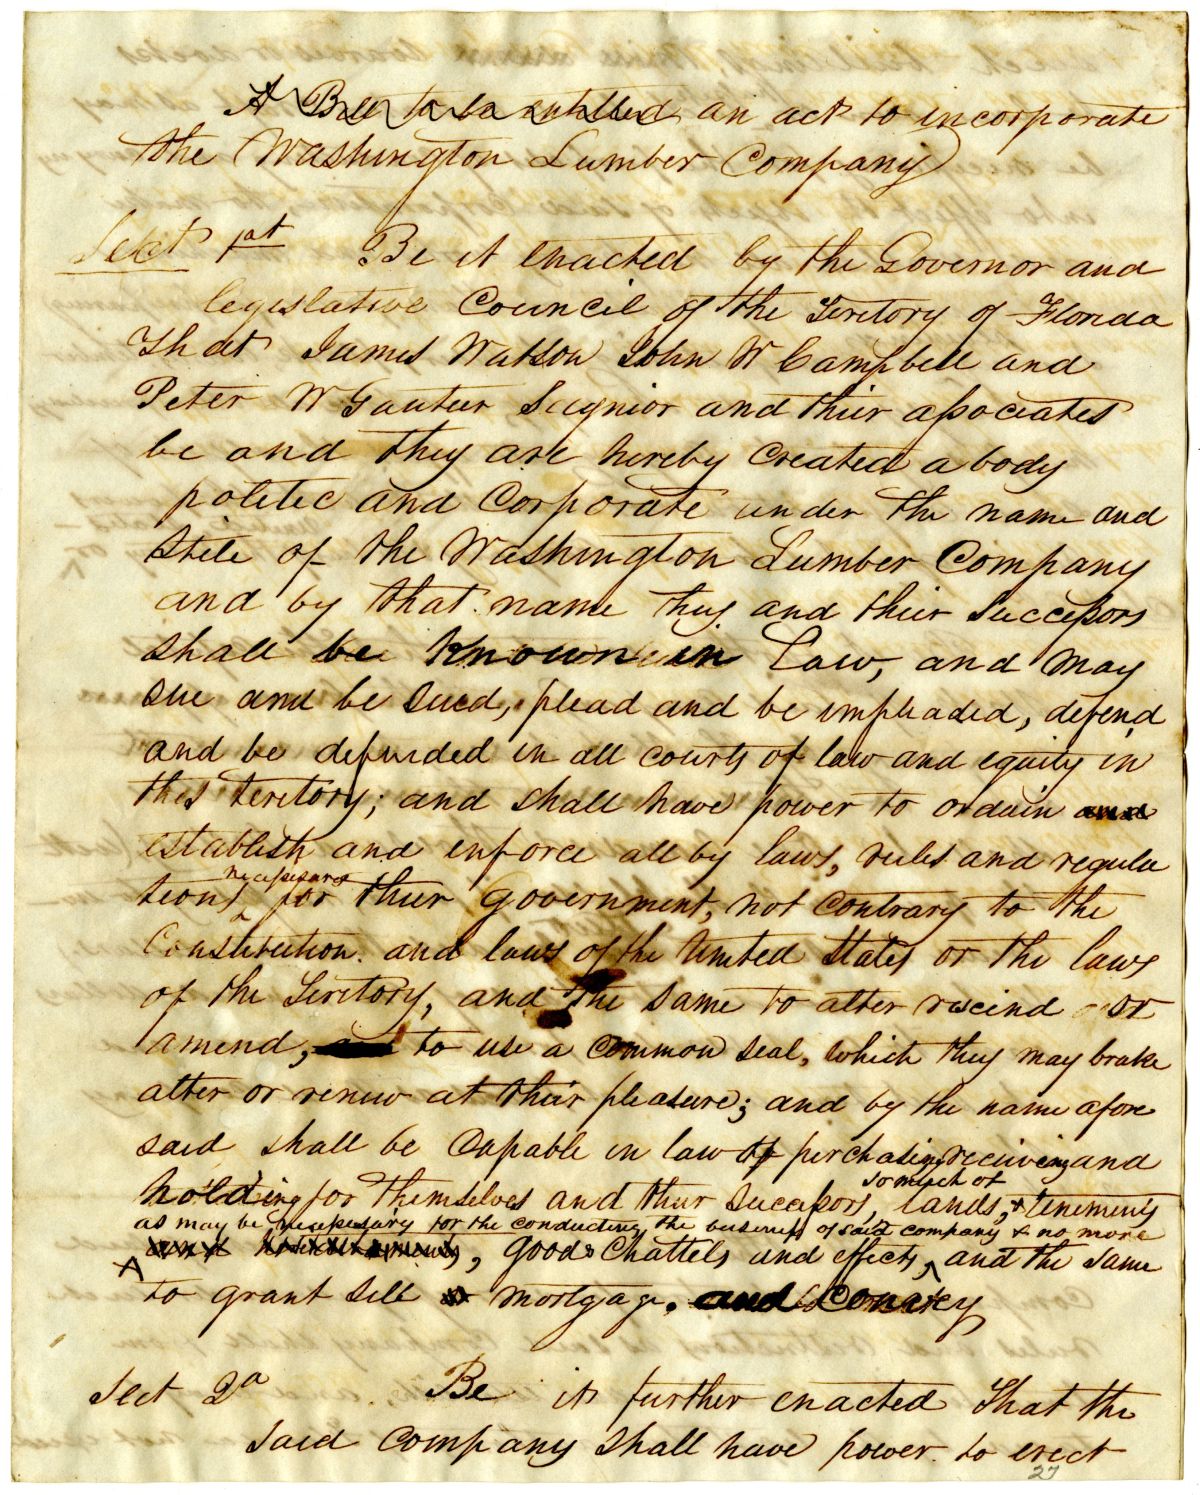 A Bill to be entitled an act to incorporate
the Washington Lumber Company
Sect 1st Be it enacted by the Governor and
legislative Council of the Teritory of Florida
That James Watson John W Campbell and
Peter W Gautier Seignior and their associates
be and they are hereby created a body
politic and Corporate under the name and
stile of the Washington Lumber Company
and by that name they and their successors
shall be known in Law, and may
sue and be sued, plead and be impleaded, defend
and be defended in all courts of law and equity in
this teritory; and shall have power to ordain and
establish and enforce all by laws, rules and regula
tions necessary for their government, not contrary to the
Constitution and laws of the United States or the laws
of the Teritory, and the same to alter rescind or
amend, to use a common seal, which they may brake
alter or renew at their pleasure; and by the name afore
said shall be Capable in law of perchasing receiving and
holding for themselves and their successors, so much of lands, & tenements
as may be necessary for the conducting the business of said company & no more
, goods Chattels and effects, and the same
to grant sell or mortgage, and Convey
Sect 2d Be it further enacted That the
said company shall have power to erect
27